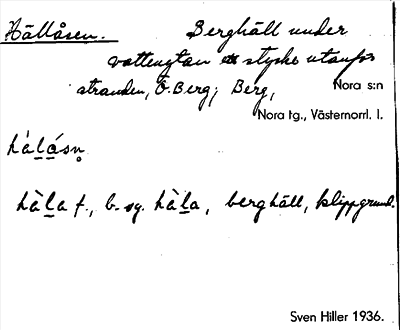 Hällåsen. Berghäll under
vattenytan ett stycke utanför
stranden, Ö. Berg; Berg, Nora s:n
Nora tg., Västernorrl. l.
hàlåsn̥
hàl̠a f., b. sg. hàl̠a, berghäll, klippgrund.
Sven Hiller 1936.